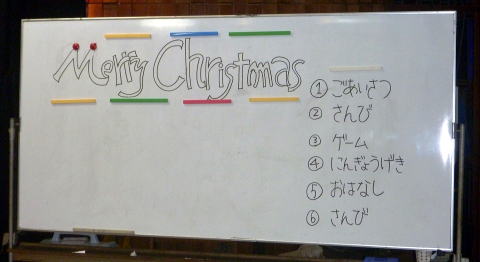 Merry Christmas
① ごあいさつ
② さんび
③ ゲーム
④ にんぎょうげき
⑤ おはなし
⑥ さんび